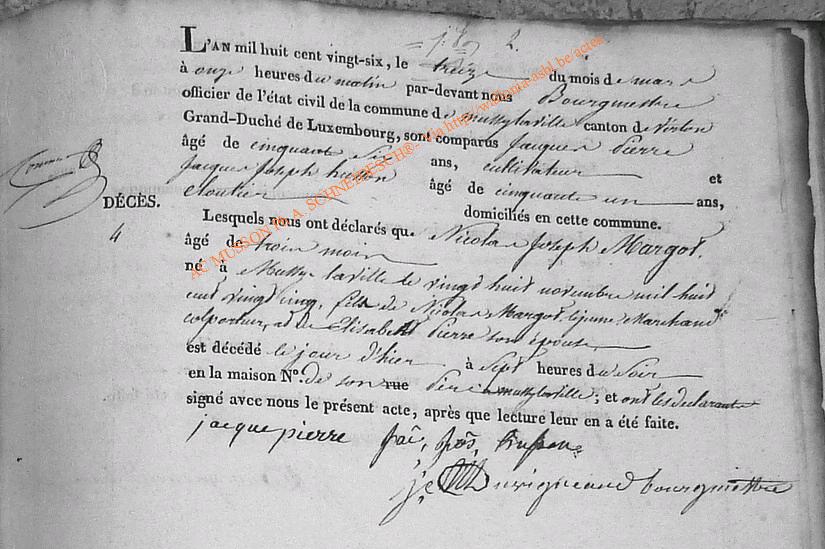 L'AN mil huit cent vingt-six, le treize du mois de mars
à onze heures du matin par-devant nous Bourgmestre
officier de l'état civil de la commune de mussylaville canton de Virton
Grand-Duché de Luxembourg, sont comparus Jacques Pierre
âgé de cinquante six ans, cultivateur et
Jacques Joseph husson âgé de cinquante un ans,
cloutier domiciliés en cette commune.
DÉCÈS.
4
Lesquels nous ont déclarés que Nicolas Joseph Margot,
âgé de trois mois
né à Mussy laville le vingt huit novembre mil huit
cent vingt cinq, fils de Nicolas Margot, lejeune, Marchand
colporteur, et de Elisabeth Pierre son épouse
est décédé le jour d'hier à sept heures du soir
en la maison N°. de son rue Père a mussylaville; et ont les declarants
signé avec nous le présent acte, après que lecture leur en a été faite.
jacque pierre husson
bourgmestre
AC MUSSON by A. SCHNEIDESCH®- via http://williama-ashl.be/actes